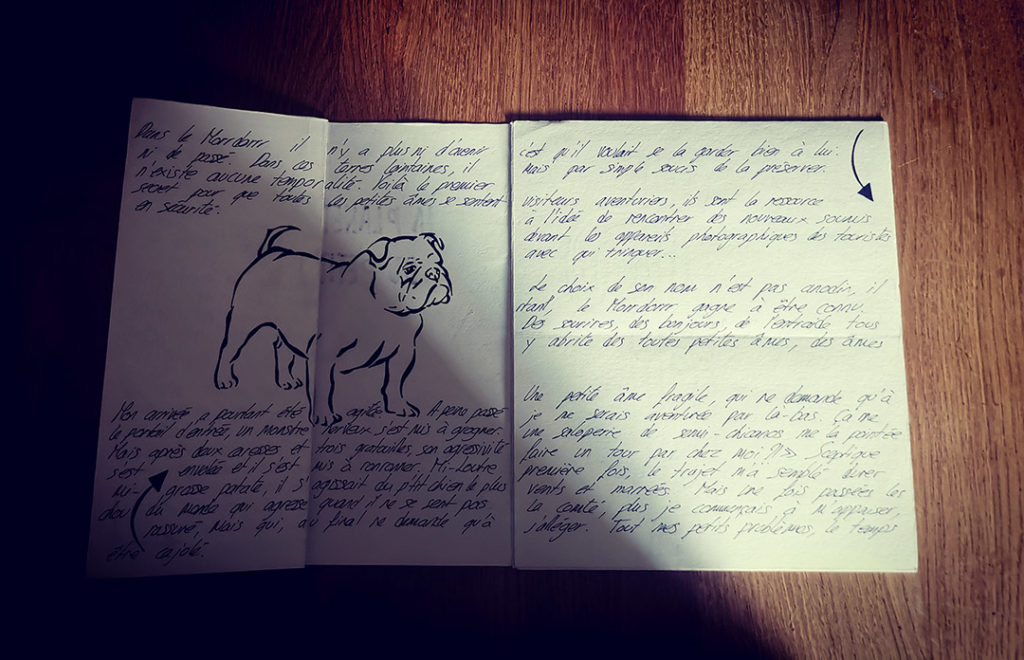 Dans le Morrdorrr il n'y a plus ni d'avenir
ni de passé. Dans ces terres lointaines, il
n'existe aucune temporalité. Voilà le premier
secret pour que toutes les petites âmes se sentent
en sécurité.
Mon arrivée a pourtant été agitée. A peine passé
le portail d'entrée, un monstre furieux s'est mis à grogner.
Mais après deux caresses et trois gratouilles, son agressivité
s'est envolée et il s'est mis à ronronner. Mi-Loutre
mi-grosse patate, il s'agissait du ptit chien le plus
doux du monde qui agresse quand il ne se sent pas
rassuré, mais qui, au final ne demande qu'à
être cajolé.
c'est qu'il voulait se la garder bien à lui.
Mais par simple soucis de la préserver.
visiteurs aventuriers, ils sont la ressource
à l'idée de rencontrer des nouveaux
devant les appareils photographiques des touristes
avec qui trinquer...
Le choix de son nom n'est pas anodin, il
le Morrdorrr gagne à être connu
Des sourires, des bonjours, de l'entraide tous
y abrite des toutes petites âmes, des âmes
Une petite âme fragile, qui ne demande qu'à
je me serais aventurée par là-bas. Ça me
une salopette de semi-chicanos me la pointée
faire un tour par chez moi ?!» Sceptique
première fois, le trajet m'a semblé durer
vents et marrées. Mais une fois passées les
la comté, plus je commençais à m'appaiser,
m'alléger. Tout mes petits problèmes, le temps